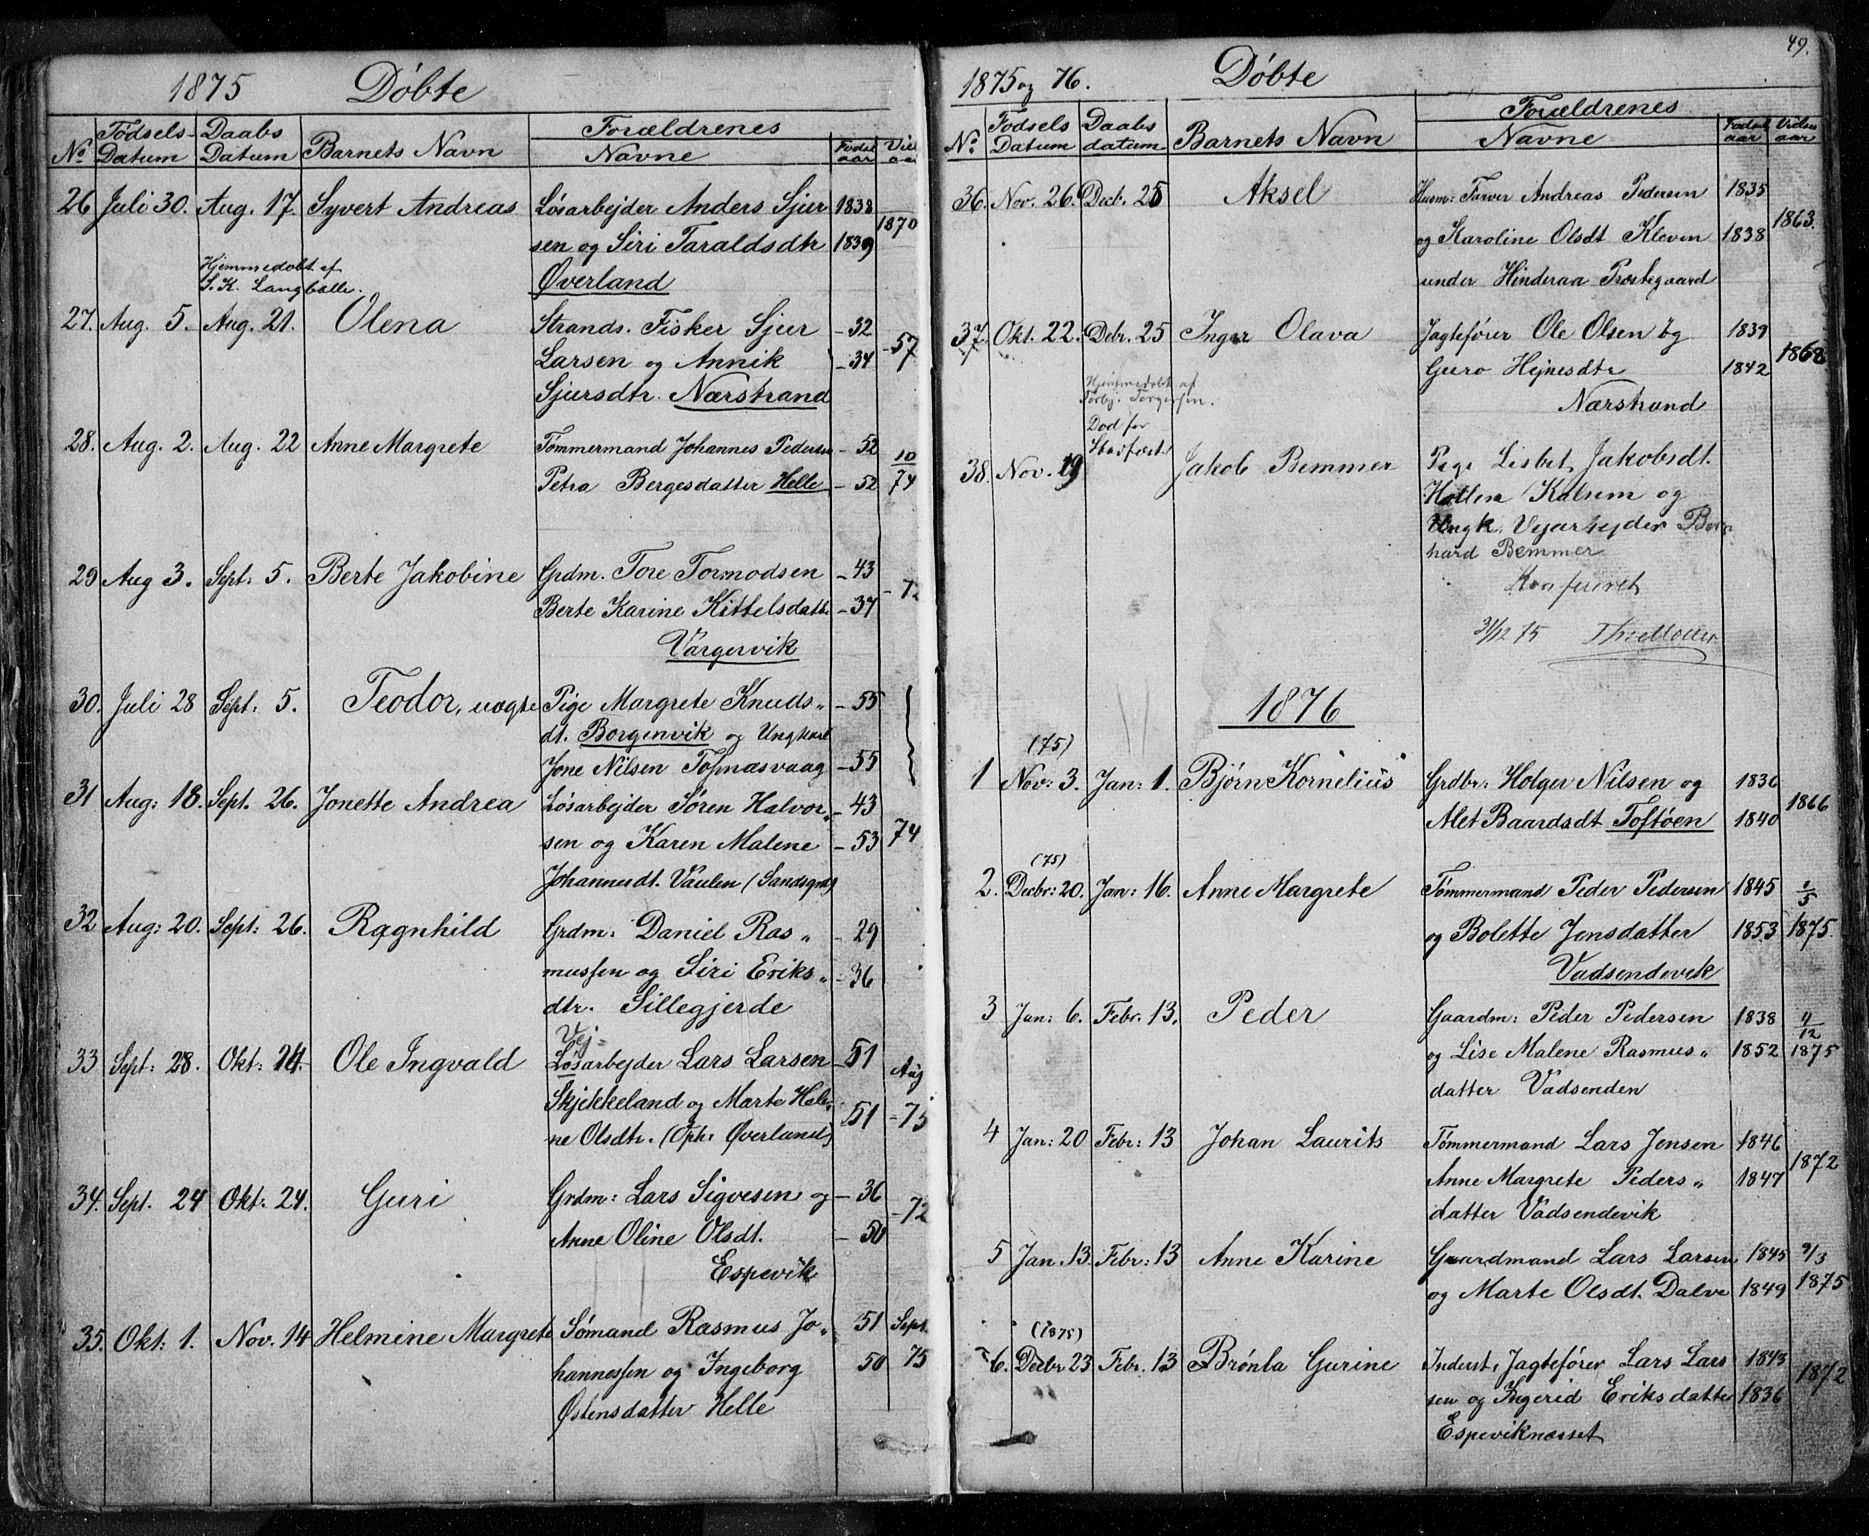 1875 Döbte
No Födsels- Datum Daabs Datum Barnets Navn Forældrenes Navne Födsels aar
26 Juli 30. Aug. 17. Syvert Andreas Lösarbejder Anders Sjur 1838
sen og Siri Taraldsdtr 1839 1870
Øverland
Hjemmedöbt af
S. K. Langballe.
27. Aug. 5. Aug. 21. Olena Strands. Fisker Sjur – 32
Larsen og Annik – 34 – 57
Sjursdtr. Nærstrand
28. Aug. 2. Aug. 22 Anne Margrete Tömmermand Johannes Pedersen – 52
Petra Bergesdatter Helle – 52 10/74
29 Aug 3. Sept. 5. Berte Jakobine Grdm. Tore Tormodsen – 43
Berte Karine Kittelsdatte – 37 – 72
Vargervik
30. Juli 28 Sept. 5. Teodor, uægte Pige Margrete Knuds„ – 55
dt. Borgenvik og Ungkarl
Jone Nilsen Tofnæsvaag – 55
31 Aug: 18. Sept. 26. Jonette Andrea Lösarbejder Sören Halvor„ – 43
sen og Karen Malene – 53 74
Johannesdt. Vaulen (Sandsgrd)
32 Aug: 20. Sept: 26. Ragnhild Grdm: Daniel Ras„ – 29
mussen og Siri Eriks„ – 36
dtr. Sillegjerde
Vej=
33 Sept: 28. Okt: 24. Ole Ingvald Lösarbejder Lars Larsen – 51
Skjekkeland og Marte Hele„ Aug
ne Olsdtr. (Oph: Øverland) – 51 – 75
34. Sept. 24 Okt: 24. Guri Grdm: Lars Sigvesen og – 36
Anne Oline Olsdt. – 50 – 72
Espevik
35. Okt: 1. Nov. 14 Helmine Margrete Sömand Rasmus Jo„ 51 Sept.
hannessen og Ingeborg 50 75
Østensdatter Helle
49.
1875 og 76. Döbte
No. Födsels Datum Daabs datum Barnets Navn Forældrenes Navne Födsels aar Vielses aar
36. Nov. 26. Decb. 25 Aksel Husm: Farver Andreas Pedersen 1835
og Karoline Olsdt Kleven 1838 1863.
under Hinderaa Præstegaard
37. Okt. 22. Debr. 25 Inger Olava Jagtefører Ole Olsen og 1839
Guro Hejnesdtr 1842 1868
Nærstrand
Hjemmedöbt af
Torbj. Torgersen.
Död før
Stadfæst.
38. Nov. 19 Jakob Bemmer Pige Lisbet Jakobsdt.
og
Ungk. Vejarbejder Bern
hard Bemmer
Konfereret
31/12 75
1876
(75)
1 Nov: 3. Jan: 1. Björn Kornelius Grdbr: Holger Nilsen og 1836
Alet Baardsdt Toftöen 1840 1866
(75)
2. Decbr: 20. Jan: 16. Anne Margrete Tömmermand Peder Pedersen 1845
og Bolette Jensdatter 1853 1875.
Vadsendevik
3 Jan: 6. Febr. 13. Peder Gaardm: Peder Pedersen 1838 4/12
og Lise Malene Rasmus„ 1852 1875
datter Vadsenden
4 Jan: 20 Febr: 13 Johan Laurits Tömmermand Lars Jensen 1846
Anne Margrete Peders„ 1847 1872
datter Vadsendevik
5 Jan. 13. Febr: 13 Anne Karine Gaardmand Lars Larsen 1845 9/3
og Marte Olsdt. Dalve 1849 1875
(1875)
6. Decbr 23 Febr. 13 Brönla Gurine Inderst, Jagtefører Lars Lars 1843
sen og Ingerid Eriksdatter 1836 1872
Espeviknæsset